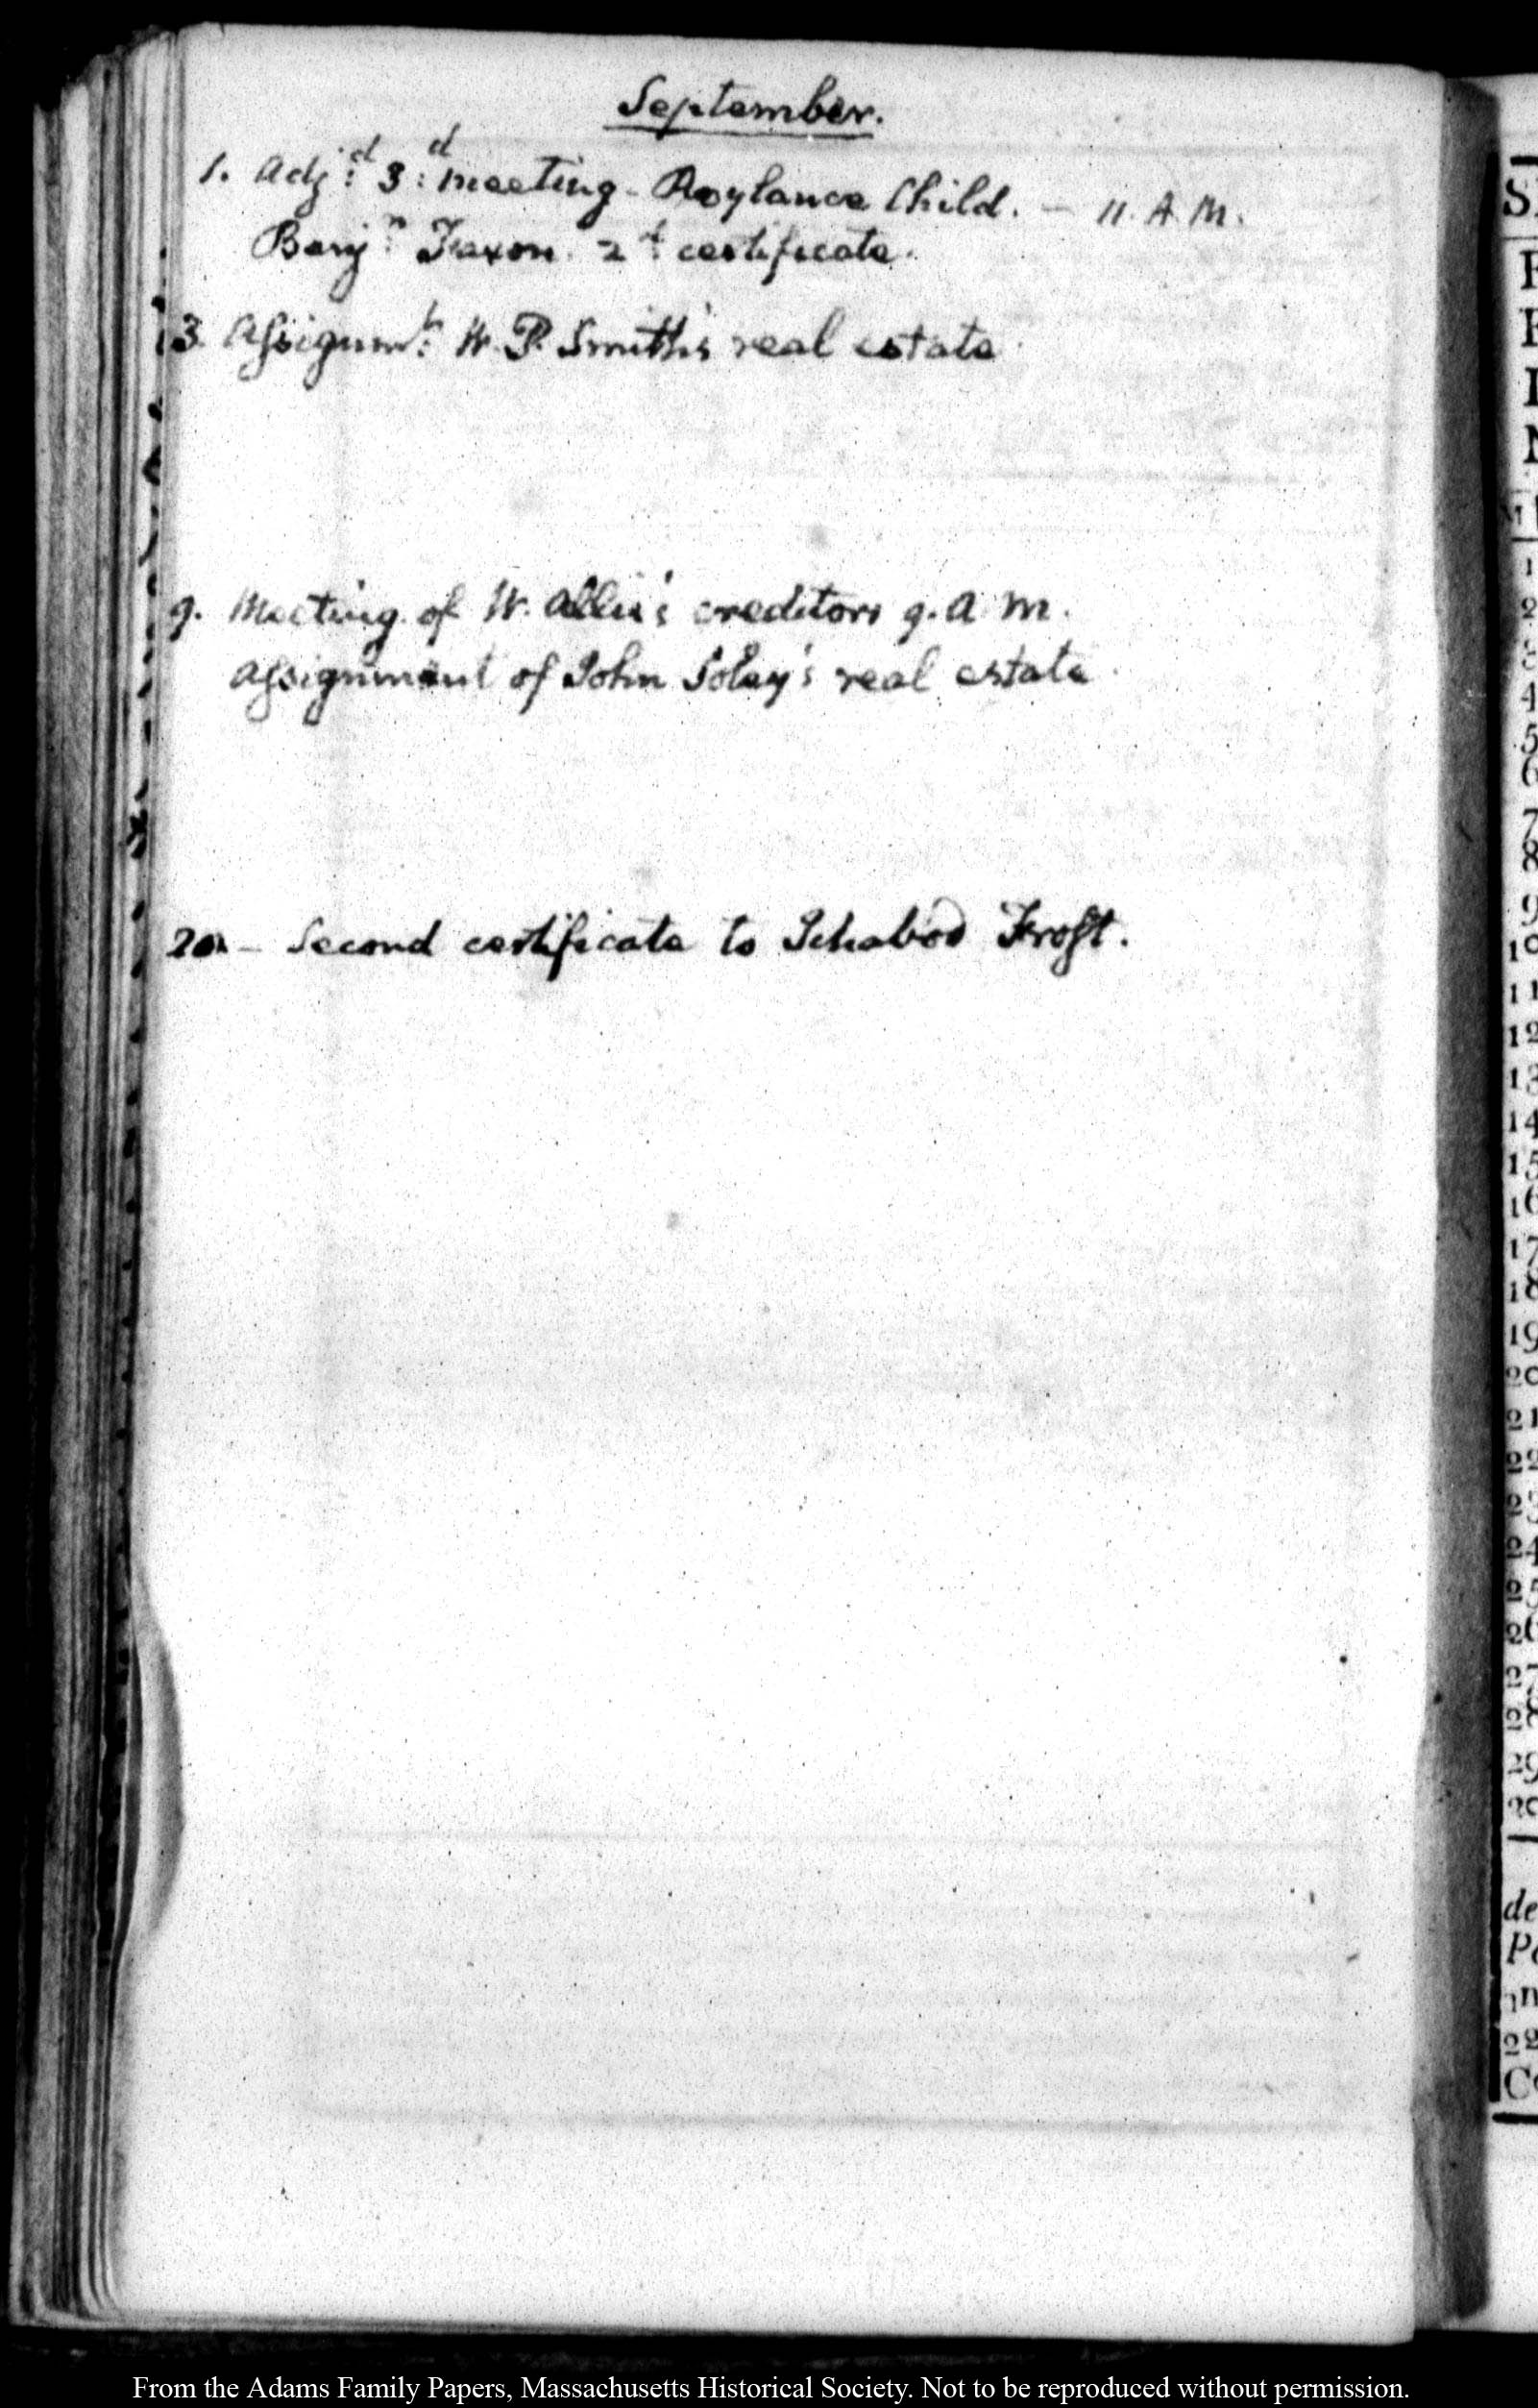 September.
1. Adj:d 3:d meeting - Roylance Child. - 11. A. M.
Benj:n Faxon. 2:d certificate.
3. Assignm:t W. P. Smith's real estate
9. Meeting of W. Allen's creditors 9. A. M.
assignment of John Soley's real estate
20. - Second certificate to Ichabod Frost.
From the Adams Family Papers, Massachusetts Historical Society. Not to be reproduced without permission.